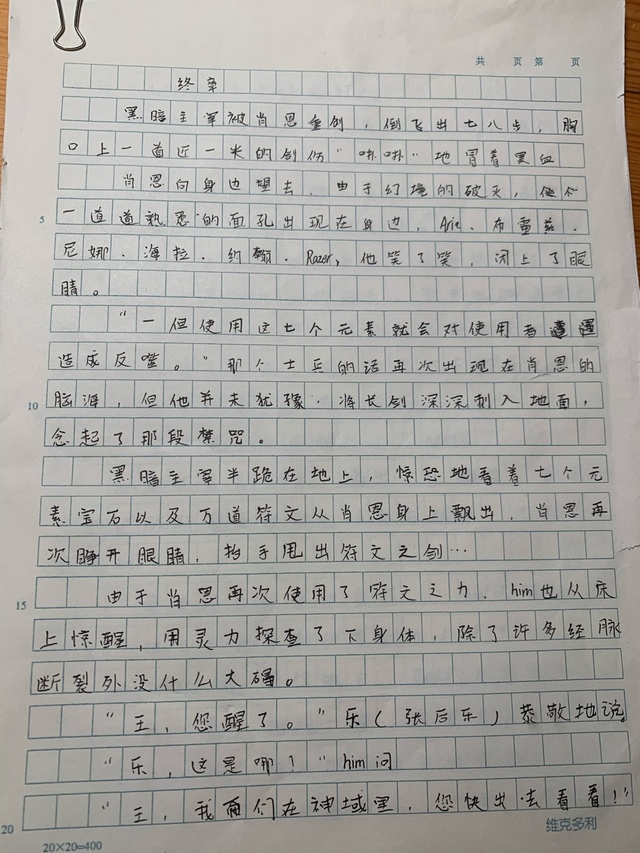 共 页 第 页
终章
黑暗主宰被肖恩重创，倒飞出七八步，胸
口上一道近一米的创伤“哧哧”地冒着黑血
肖恩向身边望去，由于幻境的破灭，
一道道熟悉的面孔出现在身边，Aric、布雷兹、
尼娜、海拉、约翰、Razer，他笑了笑，闭上了眼
睛。
“一但使用这七个元素就会对使用者
造成反噬。”那个士兵的话再次出现在肖恩的
脑海，但他并未犹豫，将长剑深深刺入地面，
念起了那段禁咒。
黑暗主宰半跪在地上，惊恐地看着七个元
素宝石以及万道符文从肖恩身上飘出，肖恩再
次睁开眼睛，抬手甩出符文之剑…
由于肖恩再次使用了符文之力，him也从床
上惊醒，用灵力探查了下身体，除了许多经脉
断裂外没什么大碍。
“王，您醒了。”乐（张后乐）恭敬地说。
“乐，这是哪？”him问
“王，我们在神域里，您快出去看看！”
5
10
15
20
20×20=400
维克多利